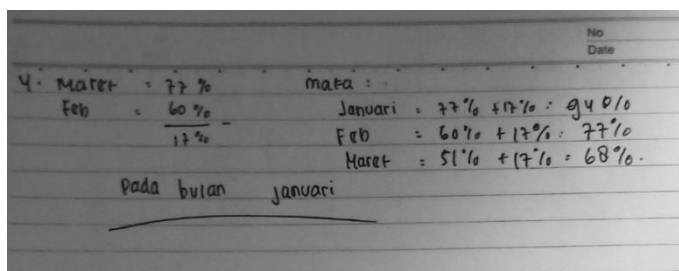 No
Date
4. Maret : 77 %
Feb : 60 % -
17 %
maka :
Januari : 77% + 17% : 94%
Feb : 60% + 17% : 77%
Maret : 51% + 17% = 68%.
Pada bulan januari